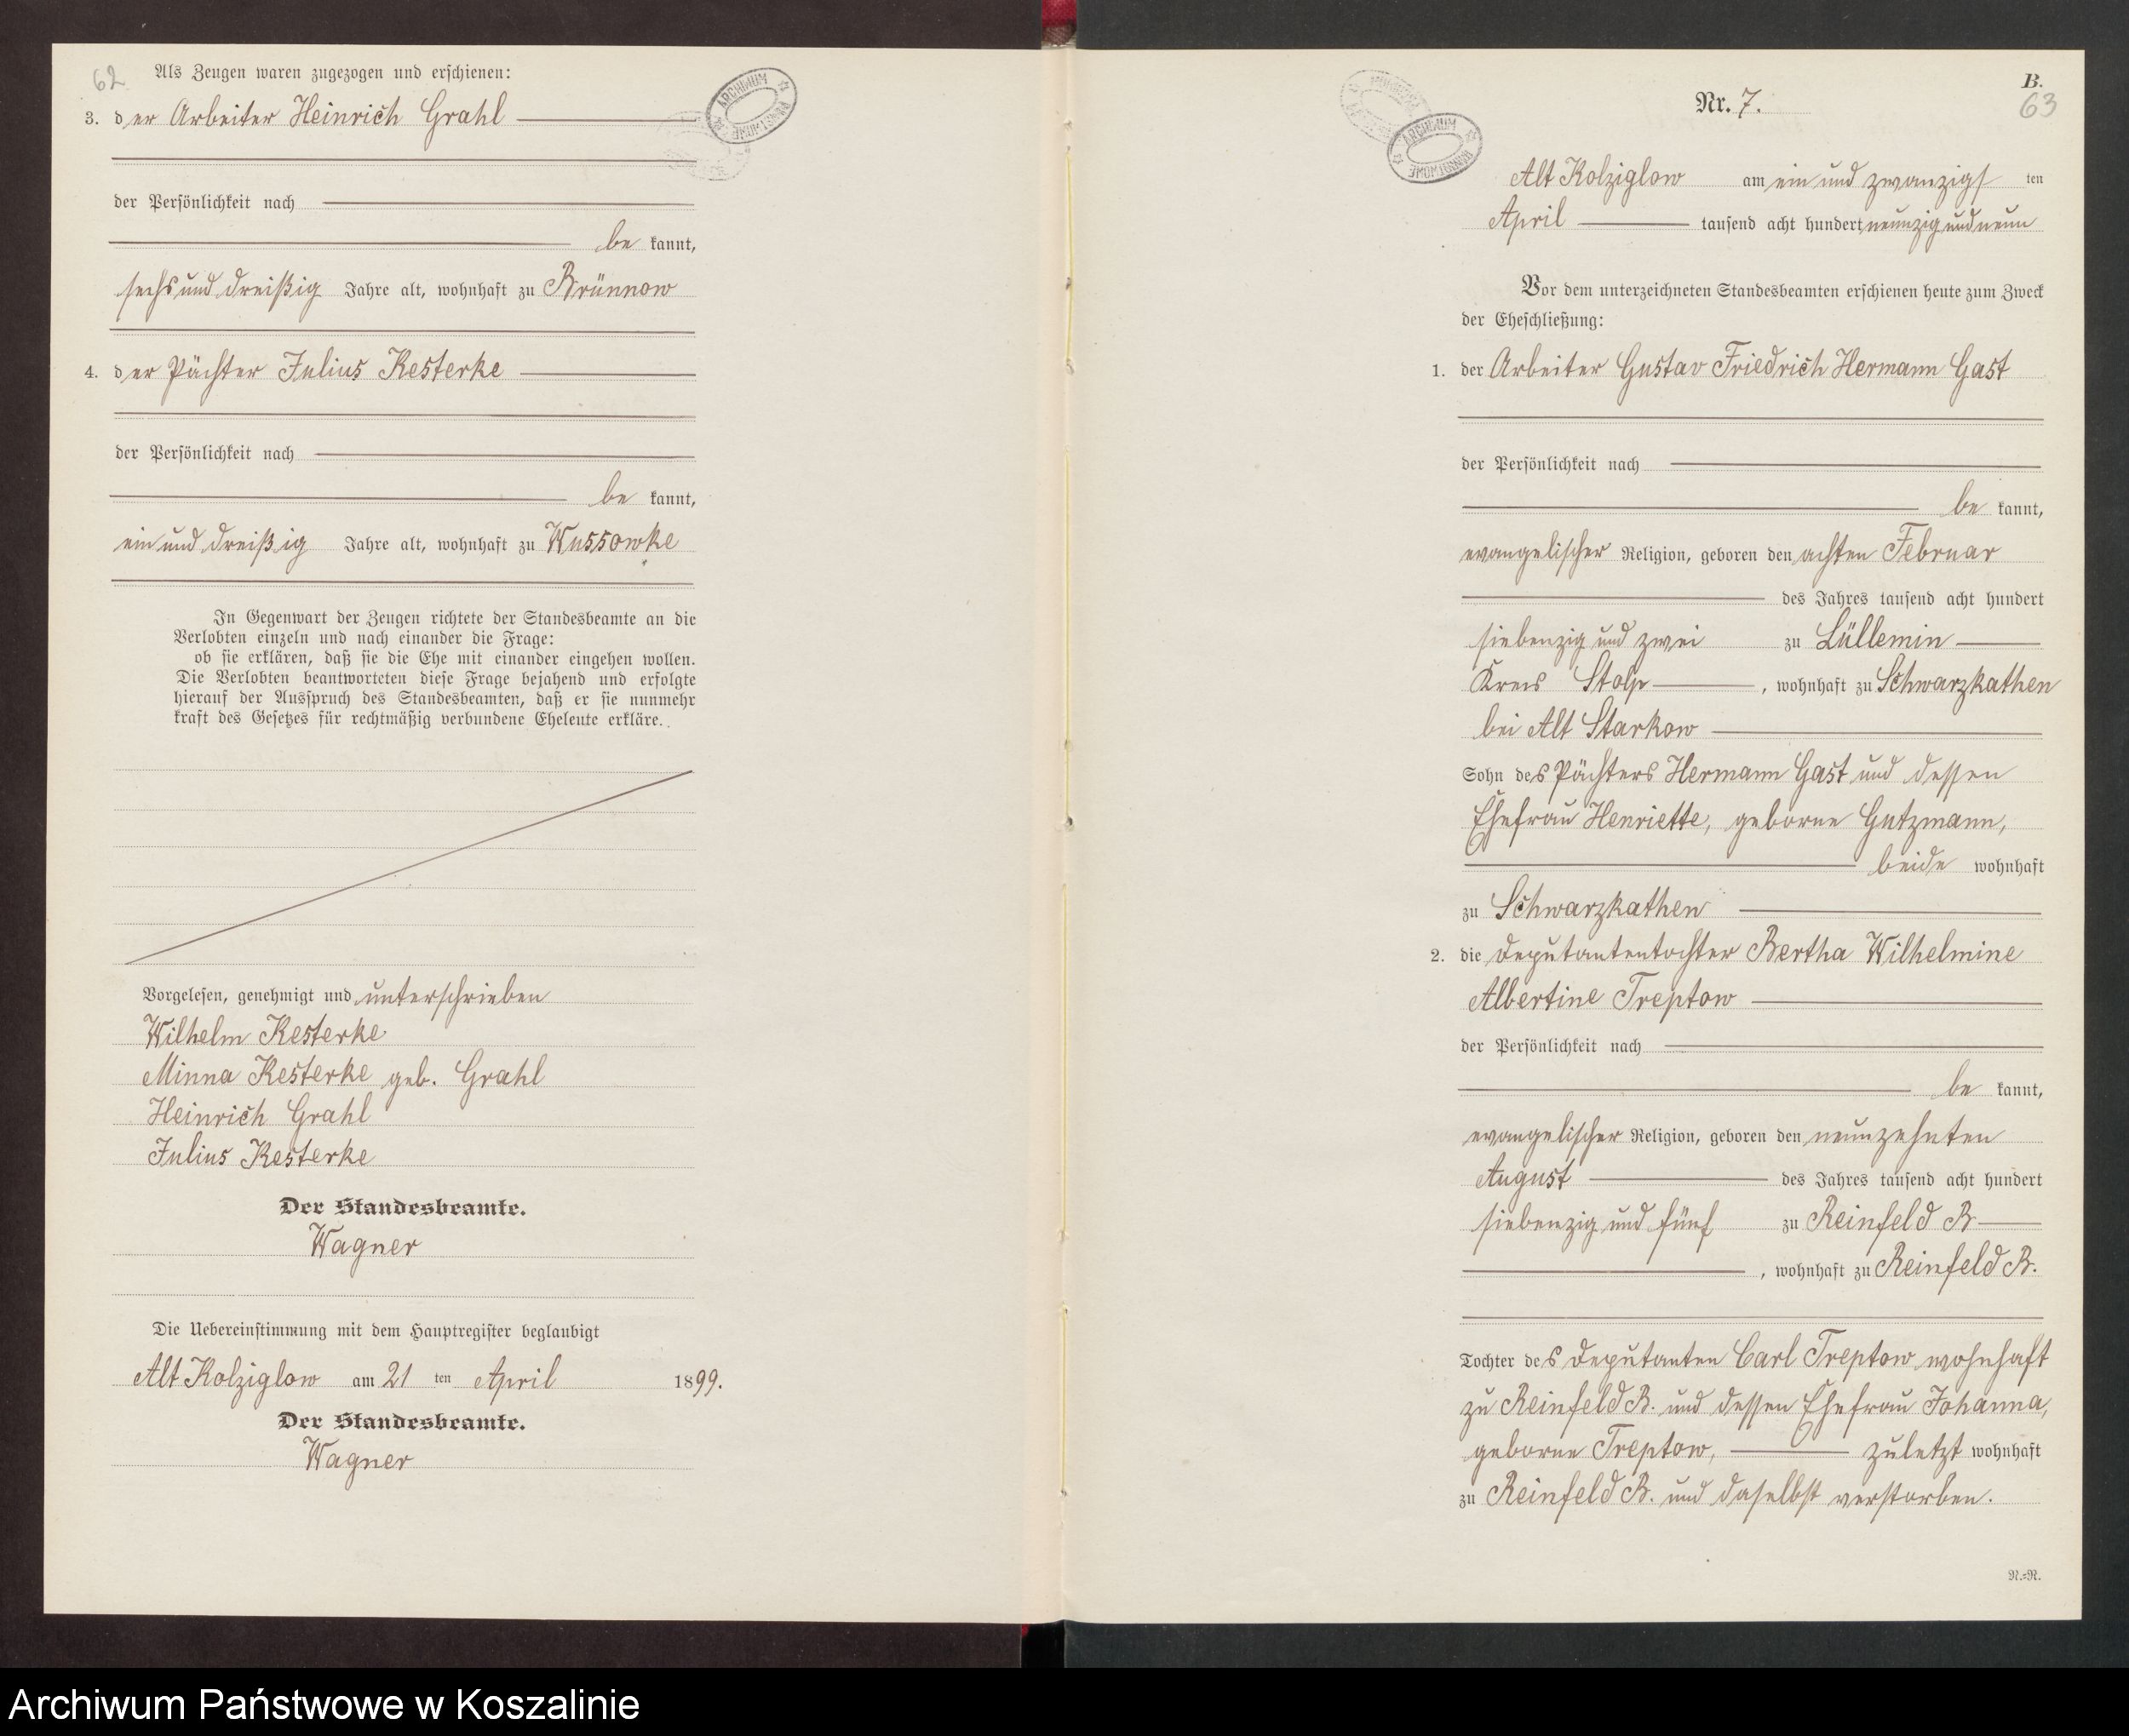 62
Als Zeugen waren zugezogen und erschienen:
3. der Arbeiter Heinrich Grahl
der Persönlichkeit nach
be kannt,
sechs und dreißig Jahre alt, wohnhaft zu Brünnow
4. der Pächter Julius Kesterke
der Persönlichkeit nach
be kannt,
ein und dreißig Jahre alt, wohnhaft zu Wussowke
In Gegenwart der Zeugen richtete der Standesbeamte an die
Verlobten einzeln und nach einander die Frage:
ob sie erklären, daß sie die Ehe mit einander eingehen wollen.
Die Verlobten beantworteten diese Frage bejahend und erfolgte
hierauf der Ausspruch des Standesbeamten, daß er sie nunmehr
kraft des Gesetzes für rechtmäßig verbundene Eheleute erkläre.
Vorgelesen, genehmigt und unterschrieben
Wilhelm Kesterke
Minna Kesterke geb. Grahl
Heinrich Grahl
Julius Kesterke
Der Standesbeamte.
Wagner
Die Uebereinstimmung mit dem Hauptregister beglaubigt
Alt Kolziglow am 21 ten April 1899.
Der Standesbeamte.
Wagner
ARCHIWUM PAŃSTWOWE
B.
Nr. 7.
63
ARCHIWUM PAŃSTWOWE
Alt Kolziglow am ein und zwanzigs ten
April tausend acht hundert neunzig und neun
Vor dem unterzeichneten Standesbeamten erschienen heute zum Zweck
der Eheschließung:
1. der Arbeiter Gustav Friedrich Hermann Gast
der Persönlichkeit nach
be kannt,
evangelischer Religion, geboren den achten Februar
des Jahres tausend acht hundert
siebenzig und zwei zu Lüllemin
Kreis Stolp, wohnhaft zu Schwarzkathen
bei Alt Starkow
Sohn des Pächters Hermann Gast und dessen
Ehefrau Henriette, geborne Gutzmann,
beide wohnhaft
zu Schwarzkathen
2. die Deputantentochter Bertha Wilhelmine
Albertine Treptow
der Persönlichkeit nach
be kannt,
evangelischer Religion, geboren den neunzehnten
August des Jahres tausend acht hundert
siebenzig und fünf zu Reinfeld B
, wohnhaft zu Reinfeld B.
Tochter des Deputanten Carl Treptow wohnhaft
zu Reinfeld B. und dessen Ehefrau Johanna,
geborne Treptow, zuletzt wohnhaft
zu Reinfeld B. und daselbst verstorben.
N.=N.
Archiwum Państwowe w Koszalinie